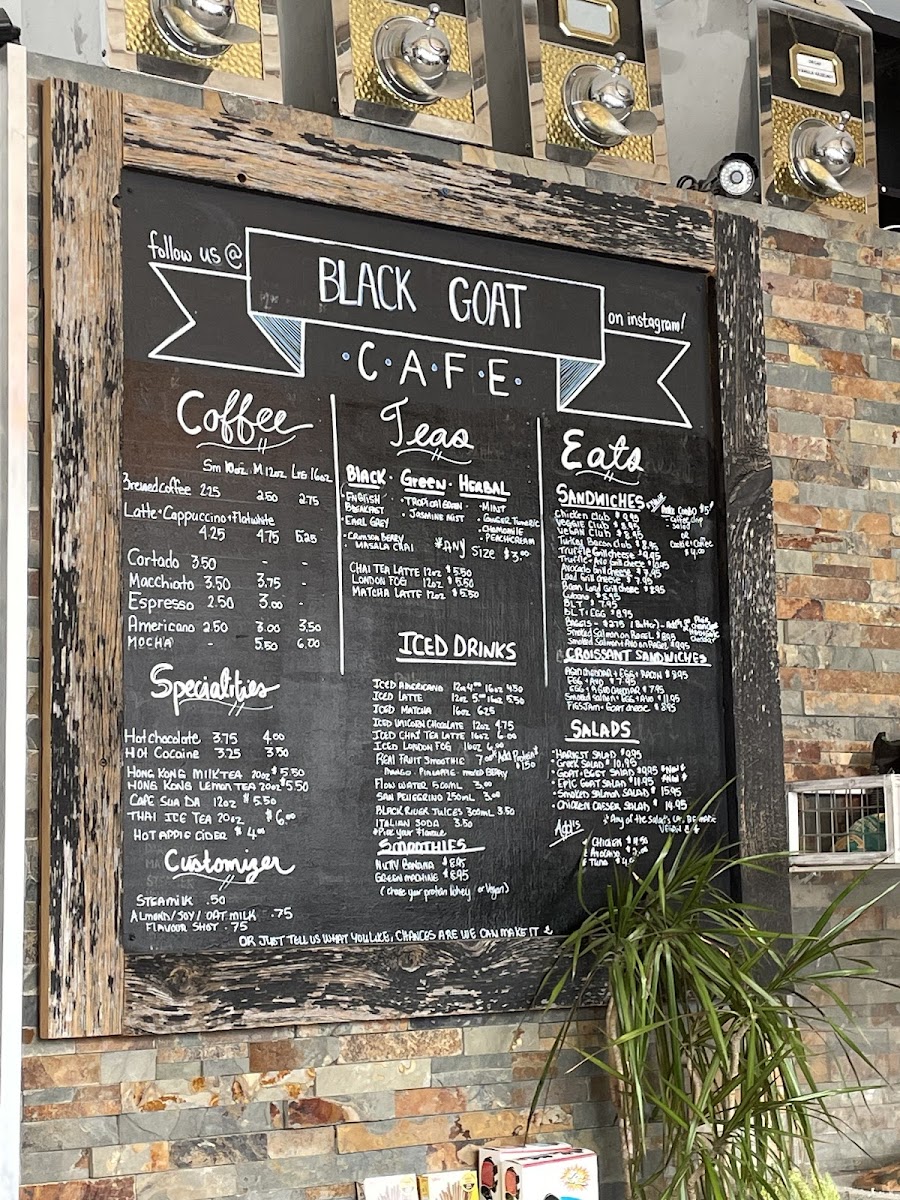 follow us @
BLACK GOAT
on instagram!
C·A·F·E·
Coffee
Sm 10oz. M 12oz Lrg 16oz
Brewed Coffee 2.25 2.50 2.75
Latte·Cappuccino·Flatwhite
4.25 4.75 5.25
Cortado 3.50 - -
Macchiato 3.50 3.75 -
Espresso 2.50 3.00 -
Americano 2.50 3.00 3.50
MOCHA - 5.50 6.00
Specialities
Hot chocolate 3.75 4.00
Hot Cocaine 3.25 3.50
HONG KONG MILK TEA 20oz $5.50
HONG KONG LEMON TEA 20oz $5.50
CAFE SUA DA 12oz $5.50
THAI ICE TEA 20oz $6.00
HOT APPLE CIDER $4.00
Customizer
STEAMILK .50
ALMOND/SOY/OAT MILK .75
FLAVOUR SHOT .75
Teas
BLACK · GREEN · HERBAL
·ENGLISH BREAKFAST
·EARL GREY
·CRIMSON BERRY
·MASALA CHAI
·TROPICAL GREEN
·JASMINE MIST
·MINT
·GINGER TUMERIC
·CHAMOMILE
·PEACH CREAM
*ANY SIZE $3.00
CHAI TEA LATTE 12oz $5.50
LONDON FOG 12oz $5.50
MATCHA LATTE 12oz $5.50
ICED DRINKS
ICED AMERICANO 12oz 4.00 16oz 4.50
ICED LATTE 12oz 5.00 16oz 5.50
ICED MATCHA 16oz 6.25
ICED UNICORN CHOCOLATE 12oz 4.75
ICED CHAI TEA LATTE 16oz 6.00
ICED LONDON FOG 16oz 6.00
REAL FRUIT SMOOTHIE 7.00 *Add Protein $1.50
MANGO · PINEAPPLE · MIXED BERRY
FLOW WATER 500mL 3.00
SAN PELLEGRINO 250mL 3.00
BLACK RIVER JUICES 300mL 3.50
ITALIAN SODA 3.50
*Pick your flavour
SMOOTHIES
NUTTY BANANA $8.95
GREEN MACHINE $8.95
(chose your protein Whey or Vegan)
Eats
SANDWICHES
Make COMBO $5
-Coffee, chip
Salad
or
Cookie + Coffee
$4.00
Chicken Club $9.95
VEGGIE Club $8.95
VEGAN Club $8.95
Turkey Bacon Club $8.95
Truffle Grill cheese $9.95
Truffle+Avo Grill cheese
Avocado Grill cheese $7.95
Load Grill cheese $7.95
Bacon Load Grill cheese $8.95
Cubano $8.95
BLT $7.95
BLT + EGG $8.95
BAGELS - $2.75 (Butter) -
Smoked Salmon on BAGEL $8.95
Smoked Salmon + AVO on BAGEL $9.95
CROISSANT SANDWICHES
AGED CHEDDAR + EGG + BACON $8.95
EGG + AVO $7.95
EGG + AGED CHEDDAR $7.95
Smoked Salmon + EGG + AVO $11.95
FIG JAM + Goat cheese $8.95
SALADS
·HARVEST SALAD $9.95
·GREEK SALAD $10.95
·GOAT+BEET SALAD $9.95 *New*
·EPIC GOAT SALAD $11.95 *New*
·SMOKED SALMON SALAD $15.95
·CHICKEN CAESAR SALAD $14.95
*Any of the salads can be made
VEGAN
Adds
CHICKEN
AVOCADO
TUNA
OR JUST TELL US WHAT YOU LIKE, CHANCES ARE WE CAN MAKE IT
DECAF
VANILLA HAZELNUT